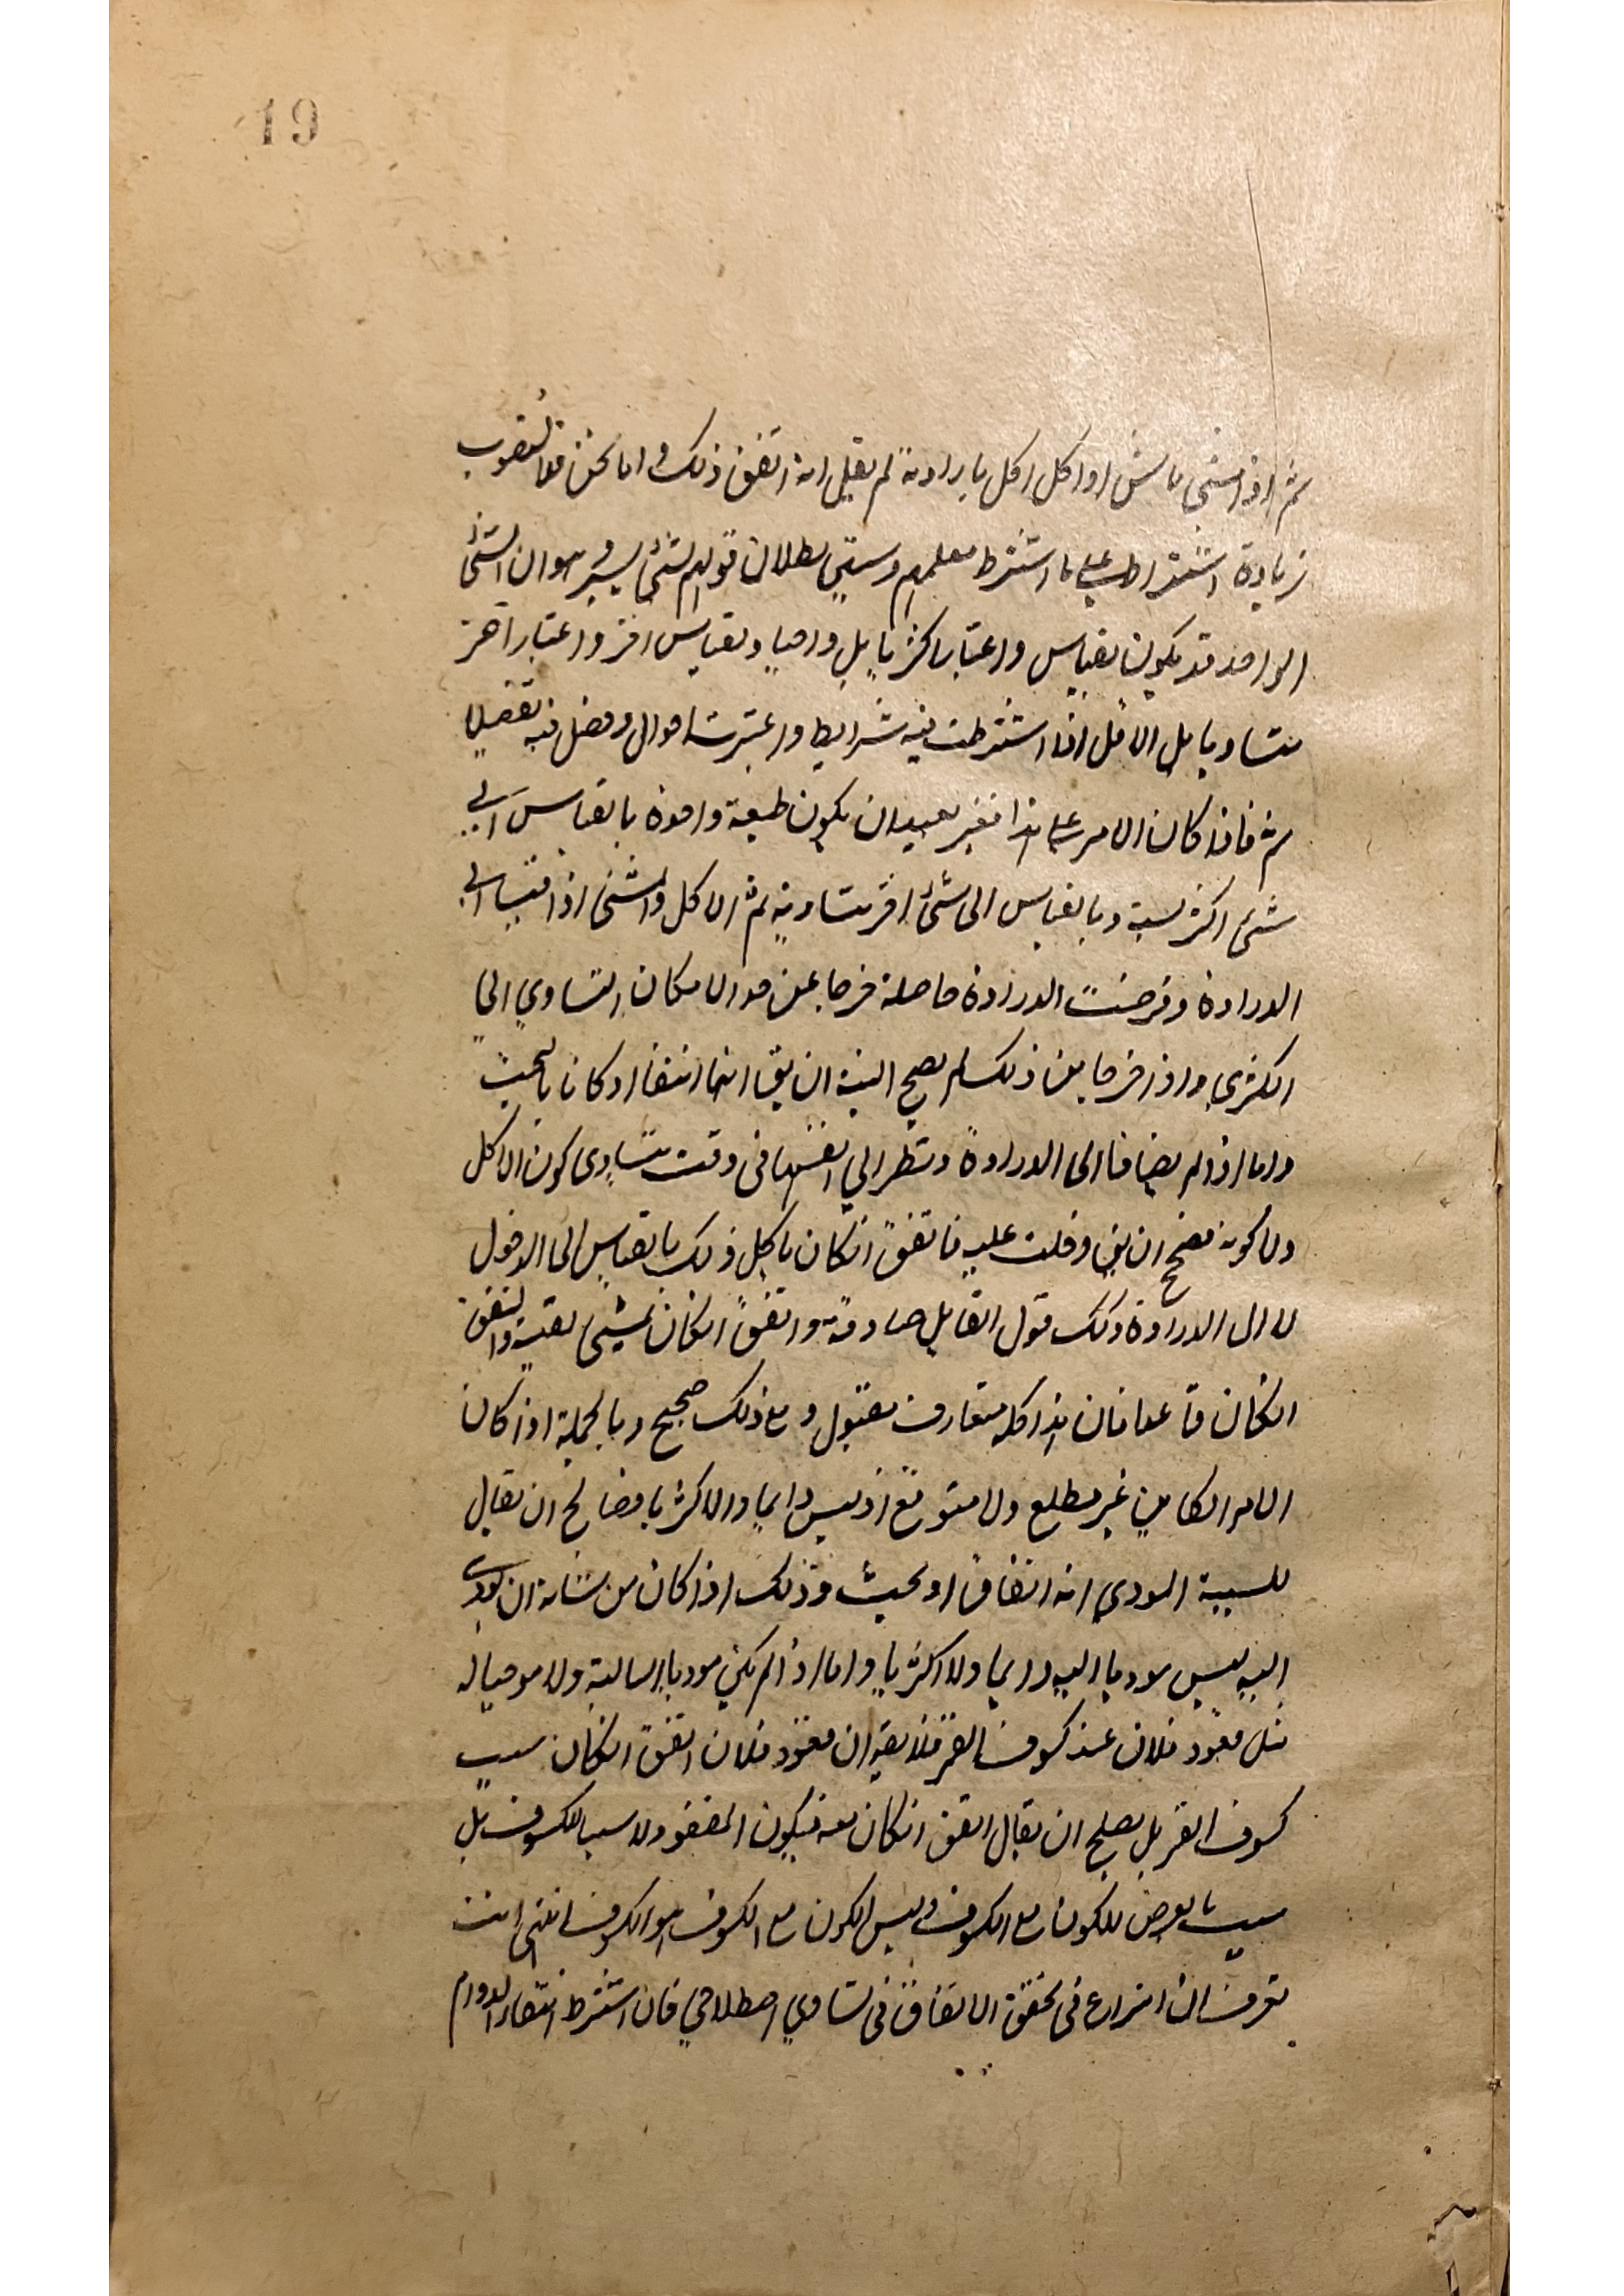 19
ثم اذا مشى ماش او اكل اكل بارادته لم يقل انه اتفق ذلك واما نحن فلا نصوب
زيادة اشتراط على ما اشترط معلمهم وستبين بطلان قولهم لشئ يسير وهو ان الشئ
الواحد قد يكون بقياس واعتبار اكثريا بل واجبا وبقياس اخر واعتبار اخر
متساويا بل الاقل اذا اشترطت فيه شرايط واعتبرت احوال وفصل فيه تفصيلا
ثم فاذا كان الامر على هذا فغير بعيد ان يكون طبيعة واحدة بالقياس الى
شئ اكثرية وبالقياس الى شئ اخر متساوية ثم الاكل والمشي اذا قيسا الى
الارادة وفرضت الارادة حاصلة خرجا عن حد الامكان التساوي الى
الاكثري واذا خرجا عن ذلك لم يصح البتة ان يق انهما اتفقا او كانا بالبخت
واما اذا لم يضافا الى الارادة ونظر الي انفسهما فى وقت تساوى كون الاكل
ولا كونه فصح ان يق دخلت عليه فاتفق ان كان ياكل ذلك بالقياس الى الدخول
لا الى الارادة وكذلك قول القايل صادفته واتفق ان كان يمشي لقيته واتفق
ان كان قاعدا فان هذا كله متعارف مقبول ومع ذلك صحيح وبالجملة اذا كان
الامر الكاين غير مطلع ولا متوقع اذ ليس دايما ولا اكثريا فصالح ان يقال
للسبب المودي انه اتفاق او بخت وذلك اذا كان من شانه ان يودى
اليه ليس موديا اليه دايما ولا اكثريا واما اذا لم يكن موديا اليه البتة ولا موجبا له
مثل قعود فلان عند كسوف القمر فلا يق ان قعود فلان اتفق ان كان سبب
كسوف القمر بل يصلح ان يقال اتفق ان كان معه فيكون القعود لا سببا للكسوف بل
سببا بالعرض للكون مع الكسوف وليس الكون مع الكسوف هو الكسوف انتهى انت
تعرف ان النزاع فى تحقق الاتفاق فى التساوي اصطلاحي فان اشترط انتفاء الدوام